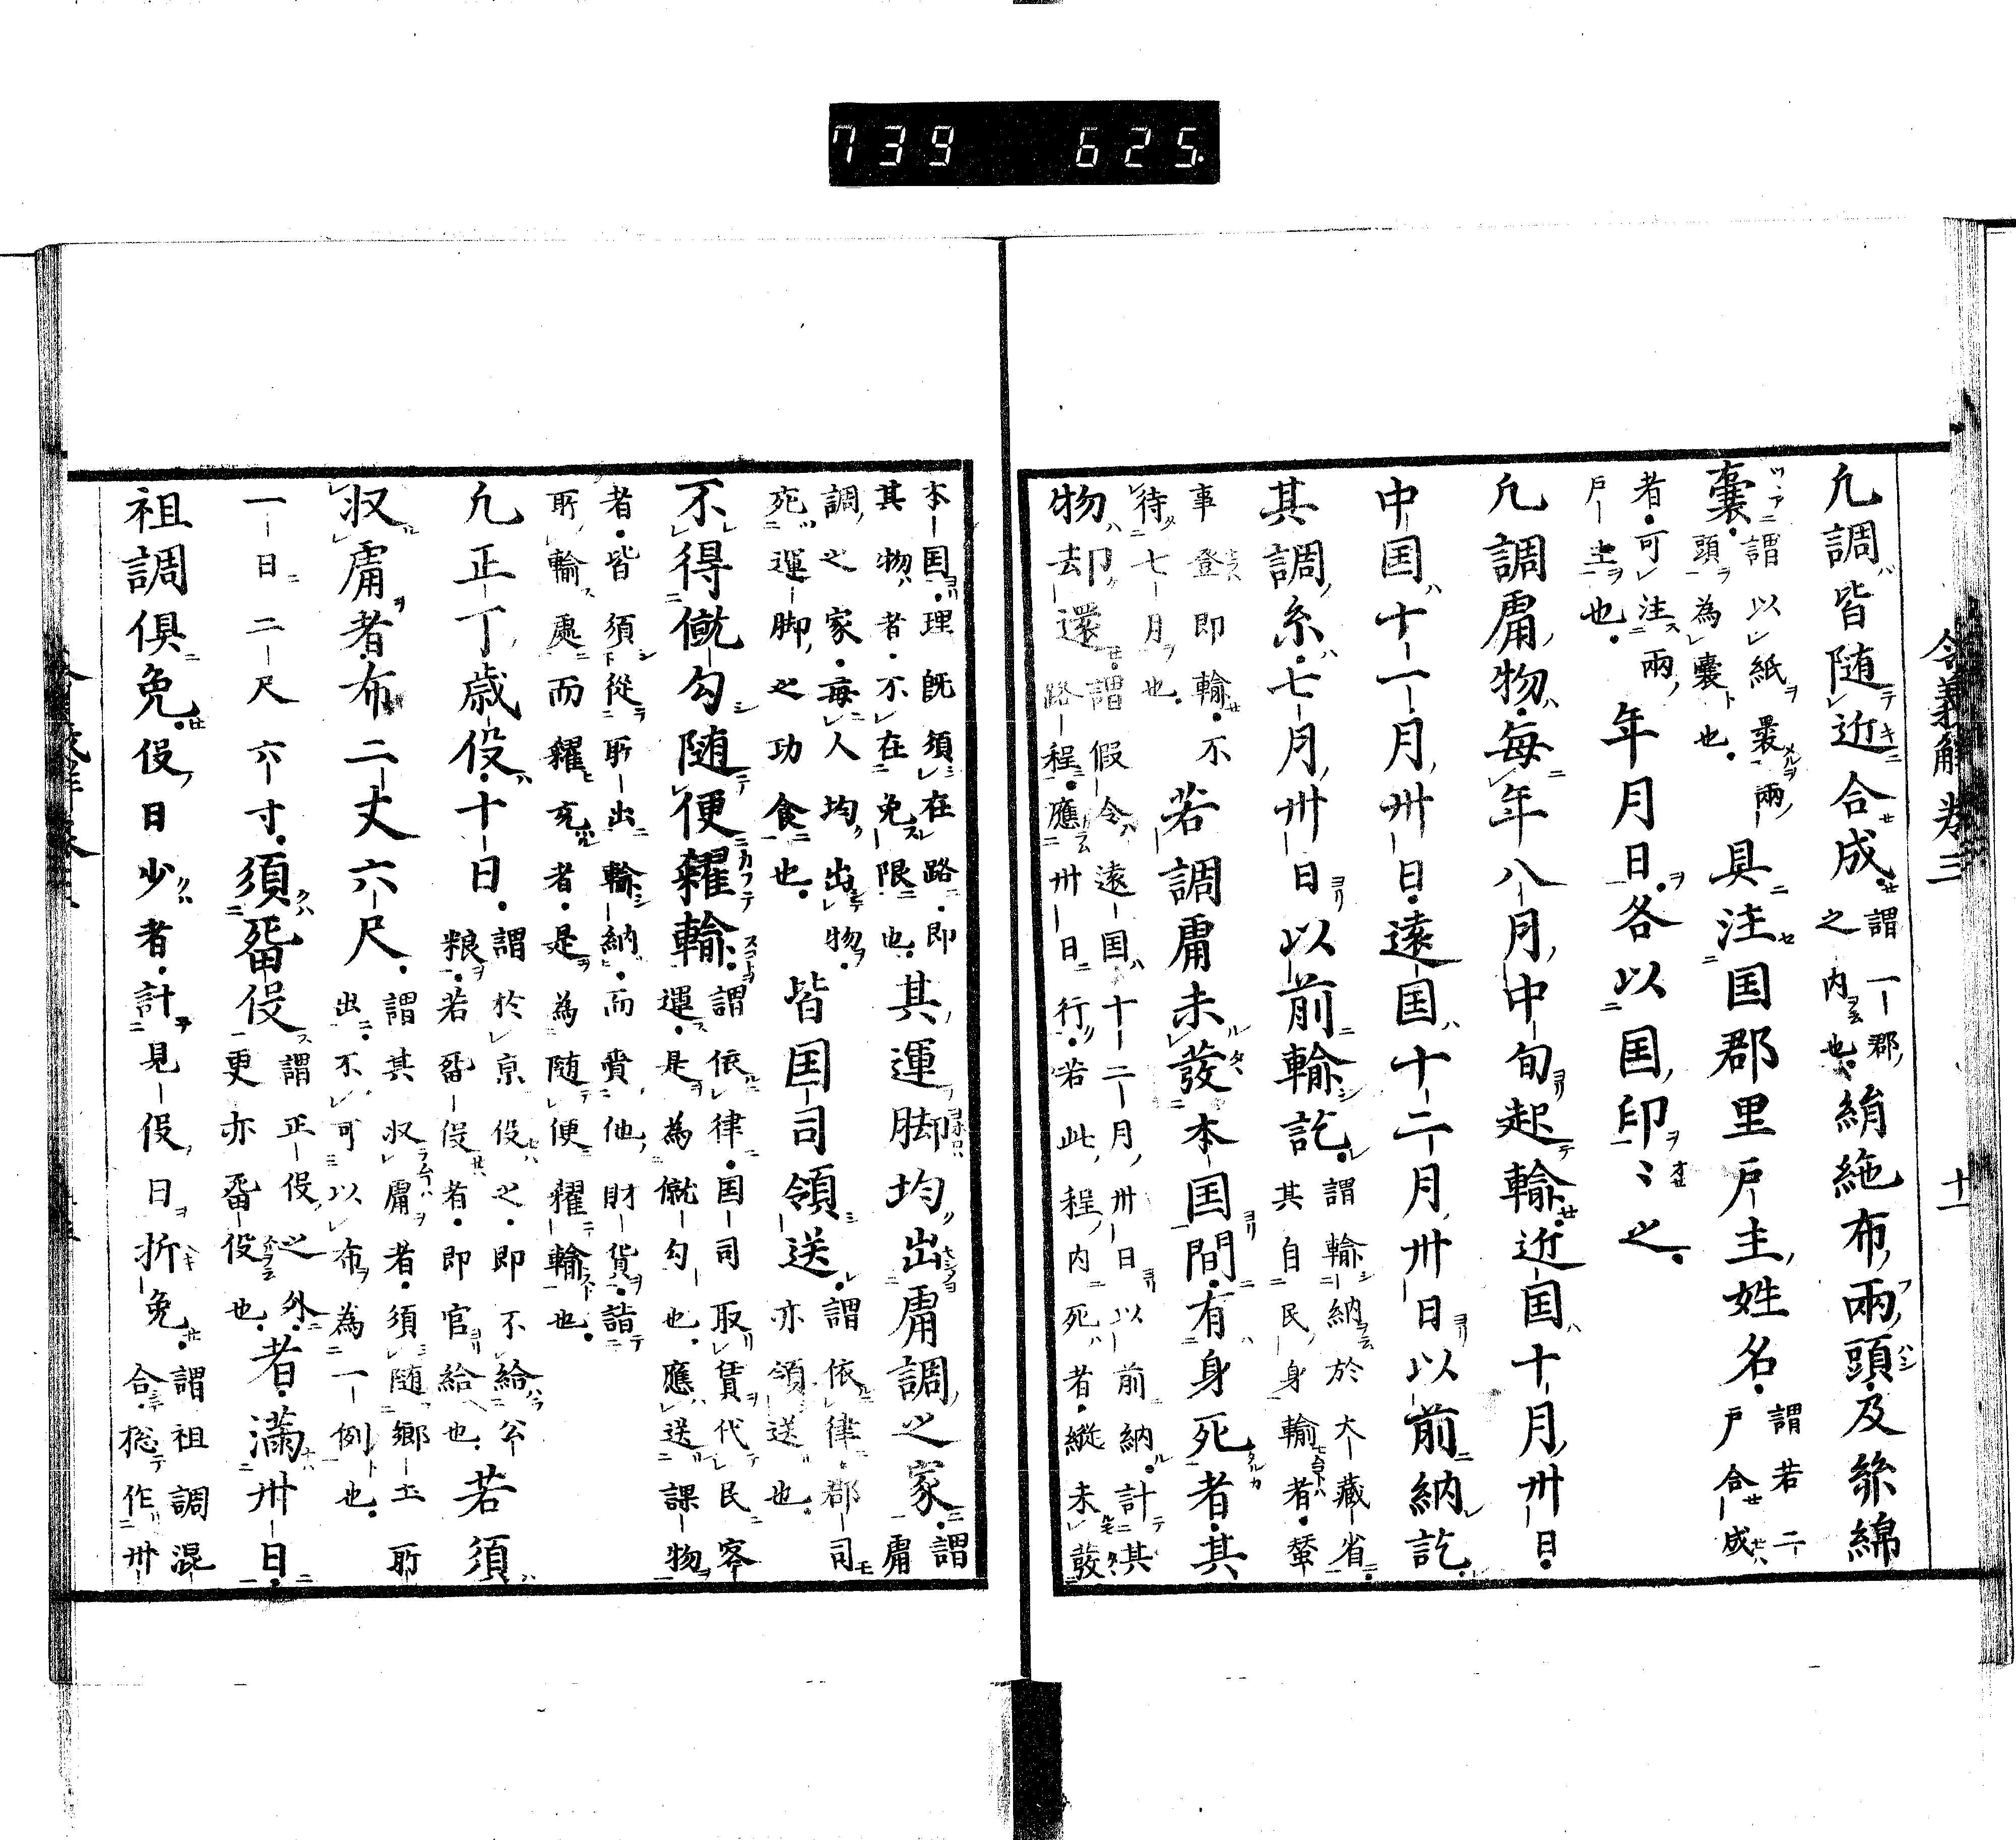 739 625
令義解卷三 十一
凡調皆随近合成謂一郡
之内也絹絁布兩頭及絲綿
囊謂以紙裹兩
頭為囊也具注国郡里戸主姓名謂若二
戸合成
者可注兩
戸主也年月日各以国印〻之
凡調庸物每年八月中旬起輸近国十月卅日
中国十一月卅日遠国十二月卅日以前納訖
其調糸七月卅日以前輸訖謂輸納於大藏省
其自民身輸者蠶
事登即輸不
待七月也若調庸未發本国間有身死者其
物却還謂假令遠国十二月卅日以前納計其
路程應卅日行若此程内死者縱未發
本国理既須在路即
其物者不在免限也其運脚均出庸調之家謂
庸
調之家每人均出物
死運脚之功食也皆国司領送謂依律郡司
亦領送也
不得僦勾随便糴輸謂依律国司取賃代民客
運是為僦勾也應送課物
者皆須從所出輸納而賷他財貨詣
所輸處而糴充者是為随便糴輸也
凡正丁歳役十日謂於京役之即不給公
粮若畱役者即官給也若須
収庸者布二丈六尺謂其収庸者須随鄉土所
出不可以布為一例也
一日二尺六寸須畱役謂正役之外
更亦畱役也者滿卅日
祖調俱免役日少者計見役日折免謂祖調混
合惣作卅